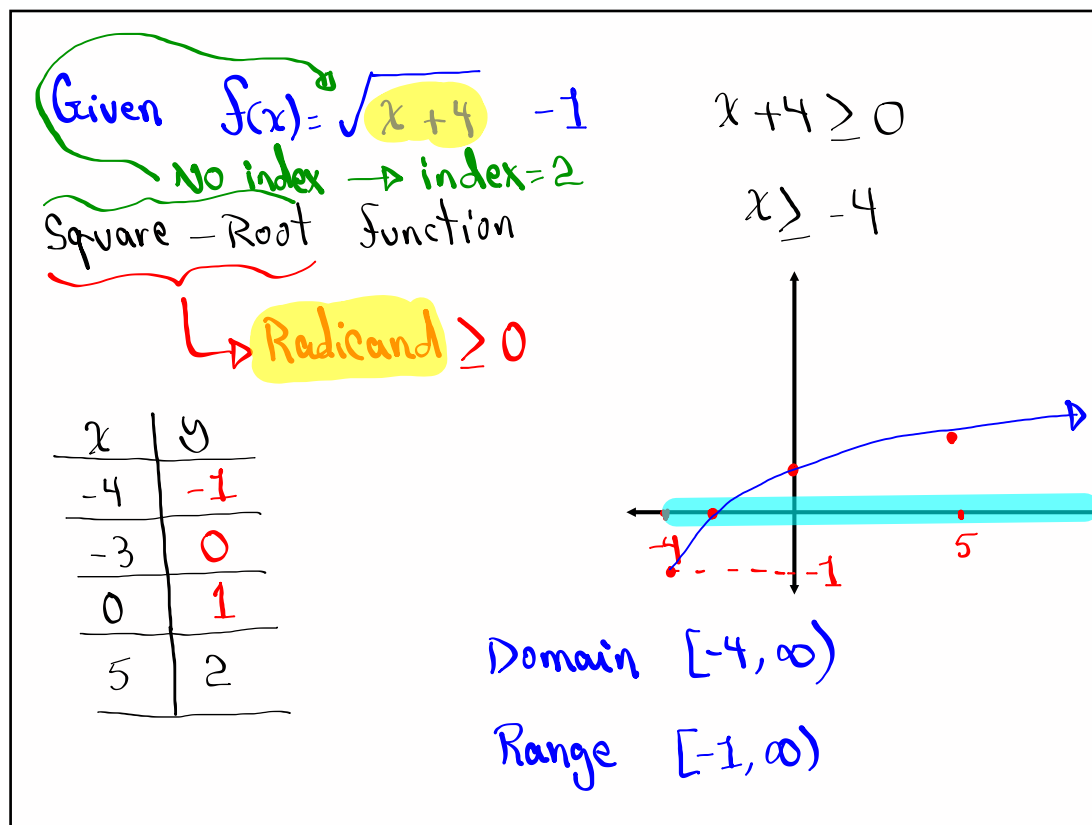 Given f(x) = √(x + 4) - 1
No index → index = 2
Square - Root function
Radicand ≥ 0
x + 4 ≥ 0
x ≥ -4
x y
-4 -1
-3 0
0 1
5 2
-4 5
-1
Domain [-4, ∞)
Range [-1, ∞)